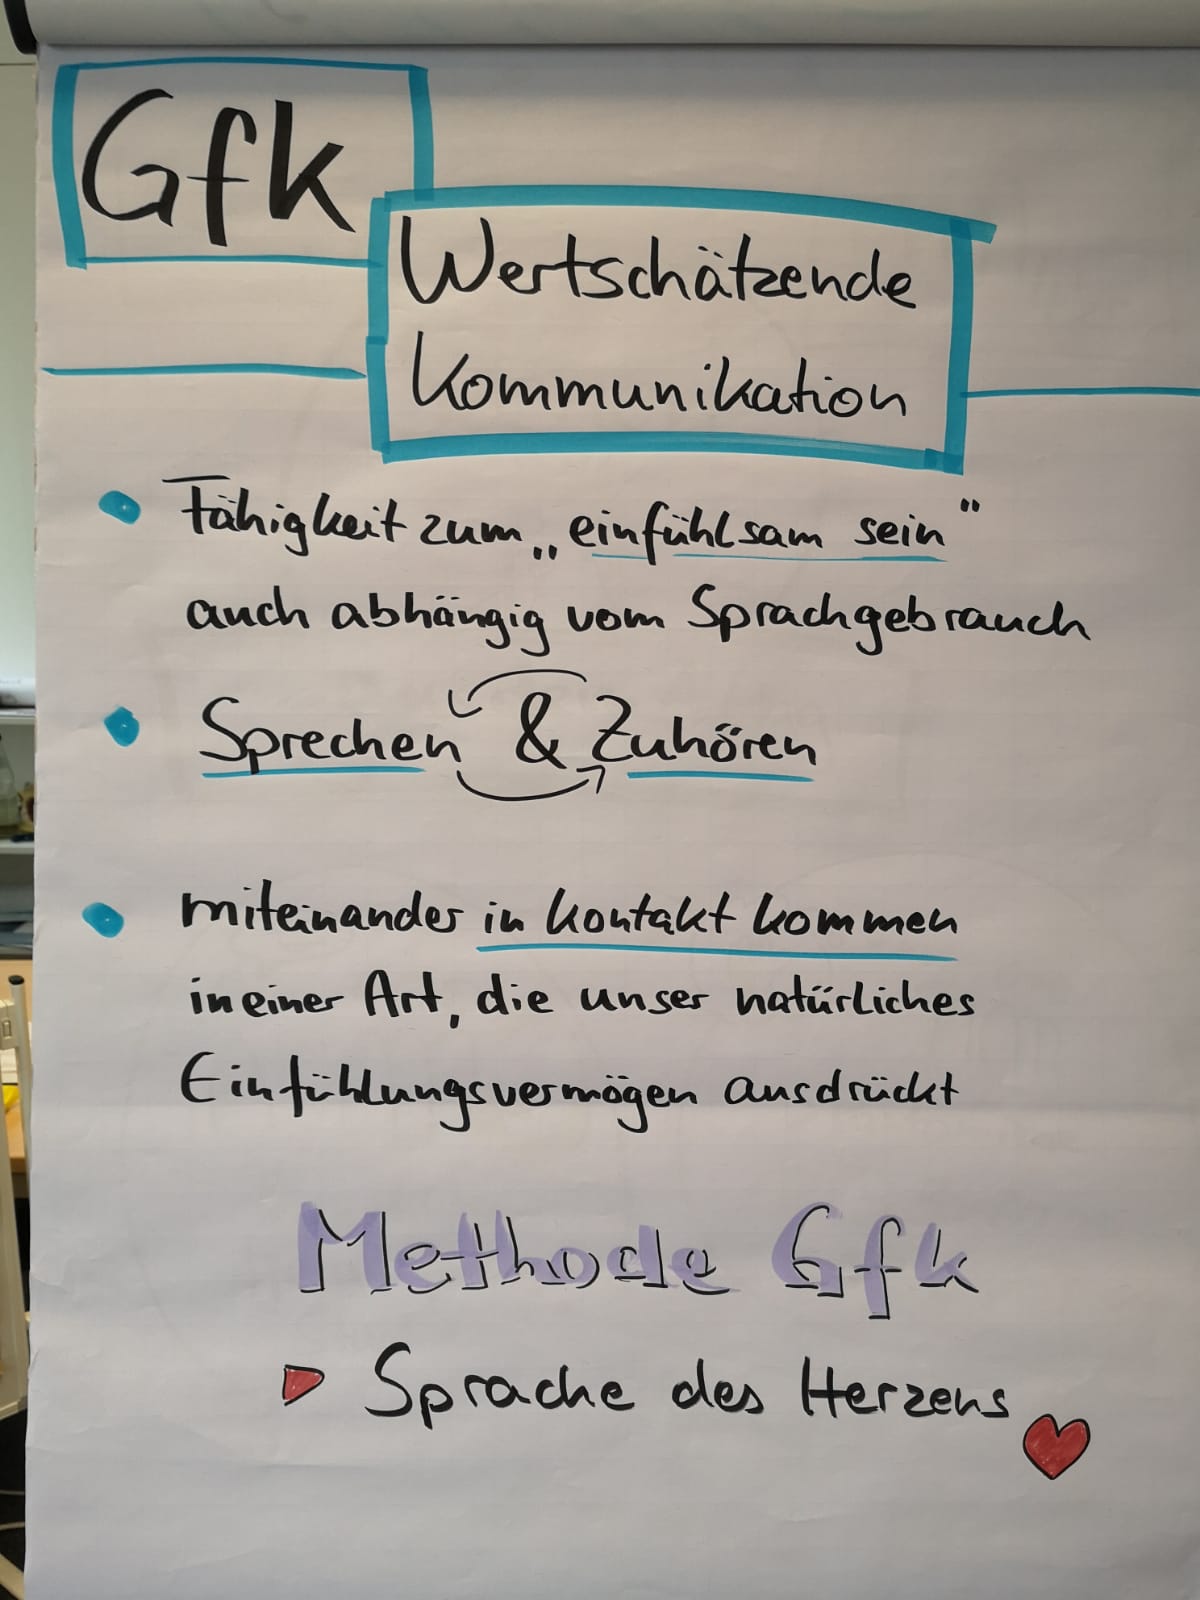 Gfk
Wertschätzende
Kommunikation
Fähigkeit zum „einfühlsam sein"
auch abhängig vom Sprachgebrauch
Sprechen & Zuhören
miteinander in Kontakt kommen
in einer Art, die unser natürliches
Einfühlungsvermögen ausdrückt
Methode Gfk
Sprache des Herzens